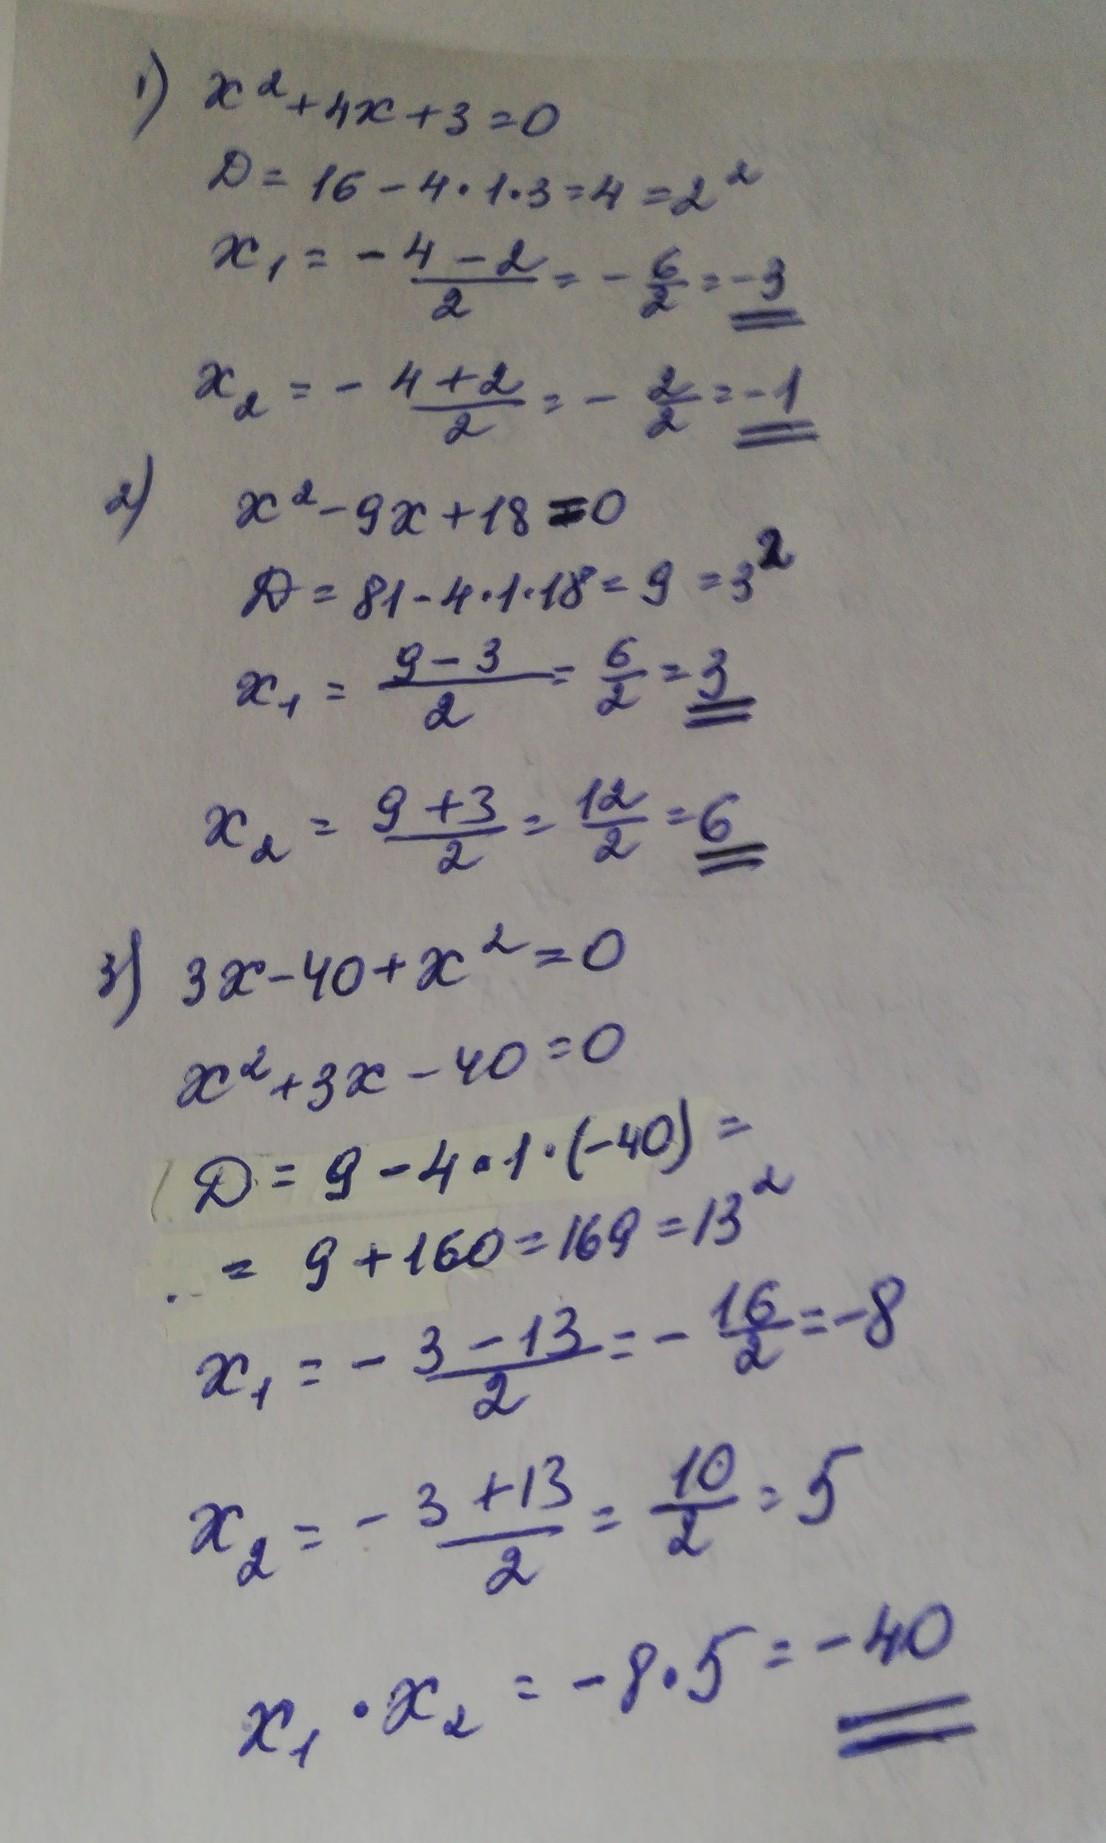 1) x²+4x+3=0
D= 16-4·1·3=4=2²
x₁ = - 4-2/2 = - 6/2 = -3
x₂ = - 4+2/2 = - 2/2 = -1
2) x²-9x+18=0
D=81-4·1·18=9=3²
x₁ = 9-3/2 = 6/2 = 3
x₂ = 9+3/2 = 12/2 = 6
3) 3x-40+x²=0
x²+3x-40=0
D=9-4·1·(-40)=
= 9+160=169=13²
x₁ = - 3-13/2 = - 16/2 = -8
x₂ = - 3+13/2 = 10/2 = 5
x₁·x₂ = -8·5=-40